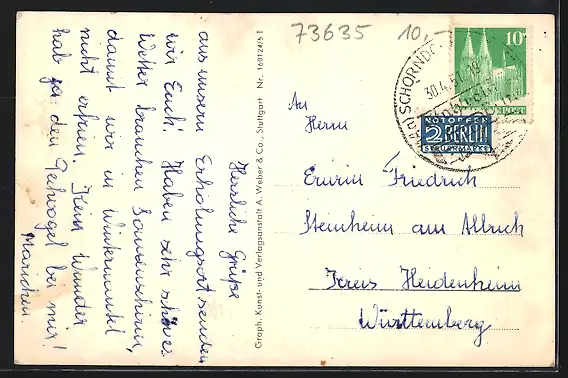 73635 10,-
Herzliche Grüße
aus unserm Erholungsort senden
wir Euch! Haben sehr schönes
Wetter brauchen Sonnenschirm,
damit wir in Wintermantel
nicht erfrieren. Kein Wunder
hab ja den Pechvogel bei mir!
Mariechen.
Graph. Kunst- und Verlagsanstalt A. Weber & Co., Stuttgart Nr. 160124/5 I
10
POST
SCHORNDORF
30.4.
NOTOPFER
2 BERLIN
STEUERMARKE
An
Herrn
Erwin Friedrich
Steinheim am Albuch
Kreis Heidenheim
Württemberg